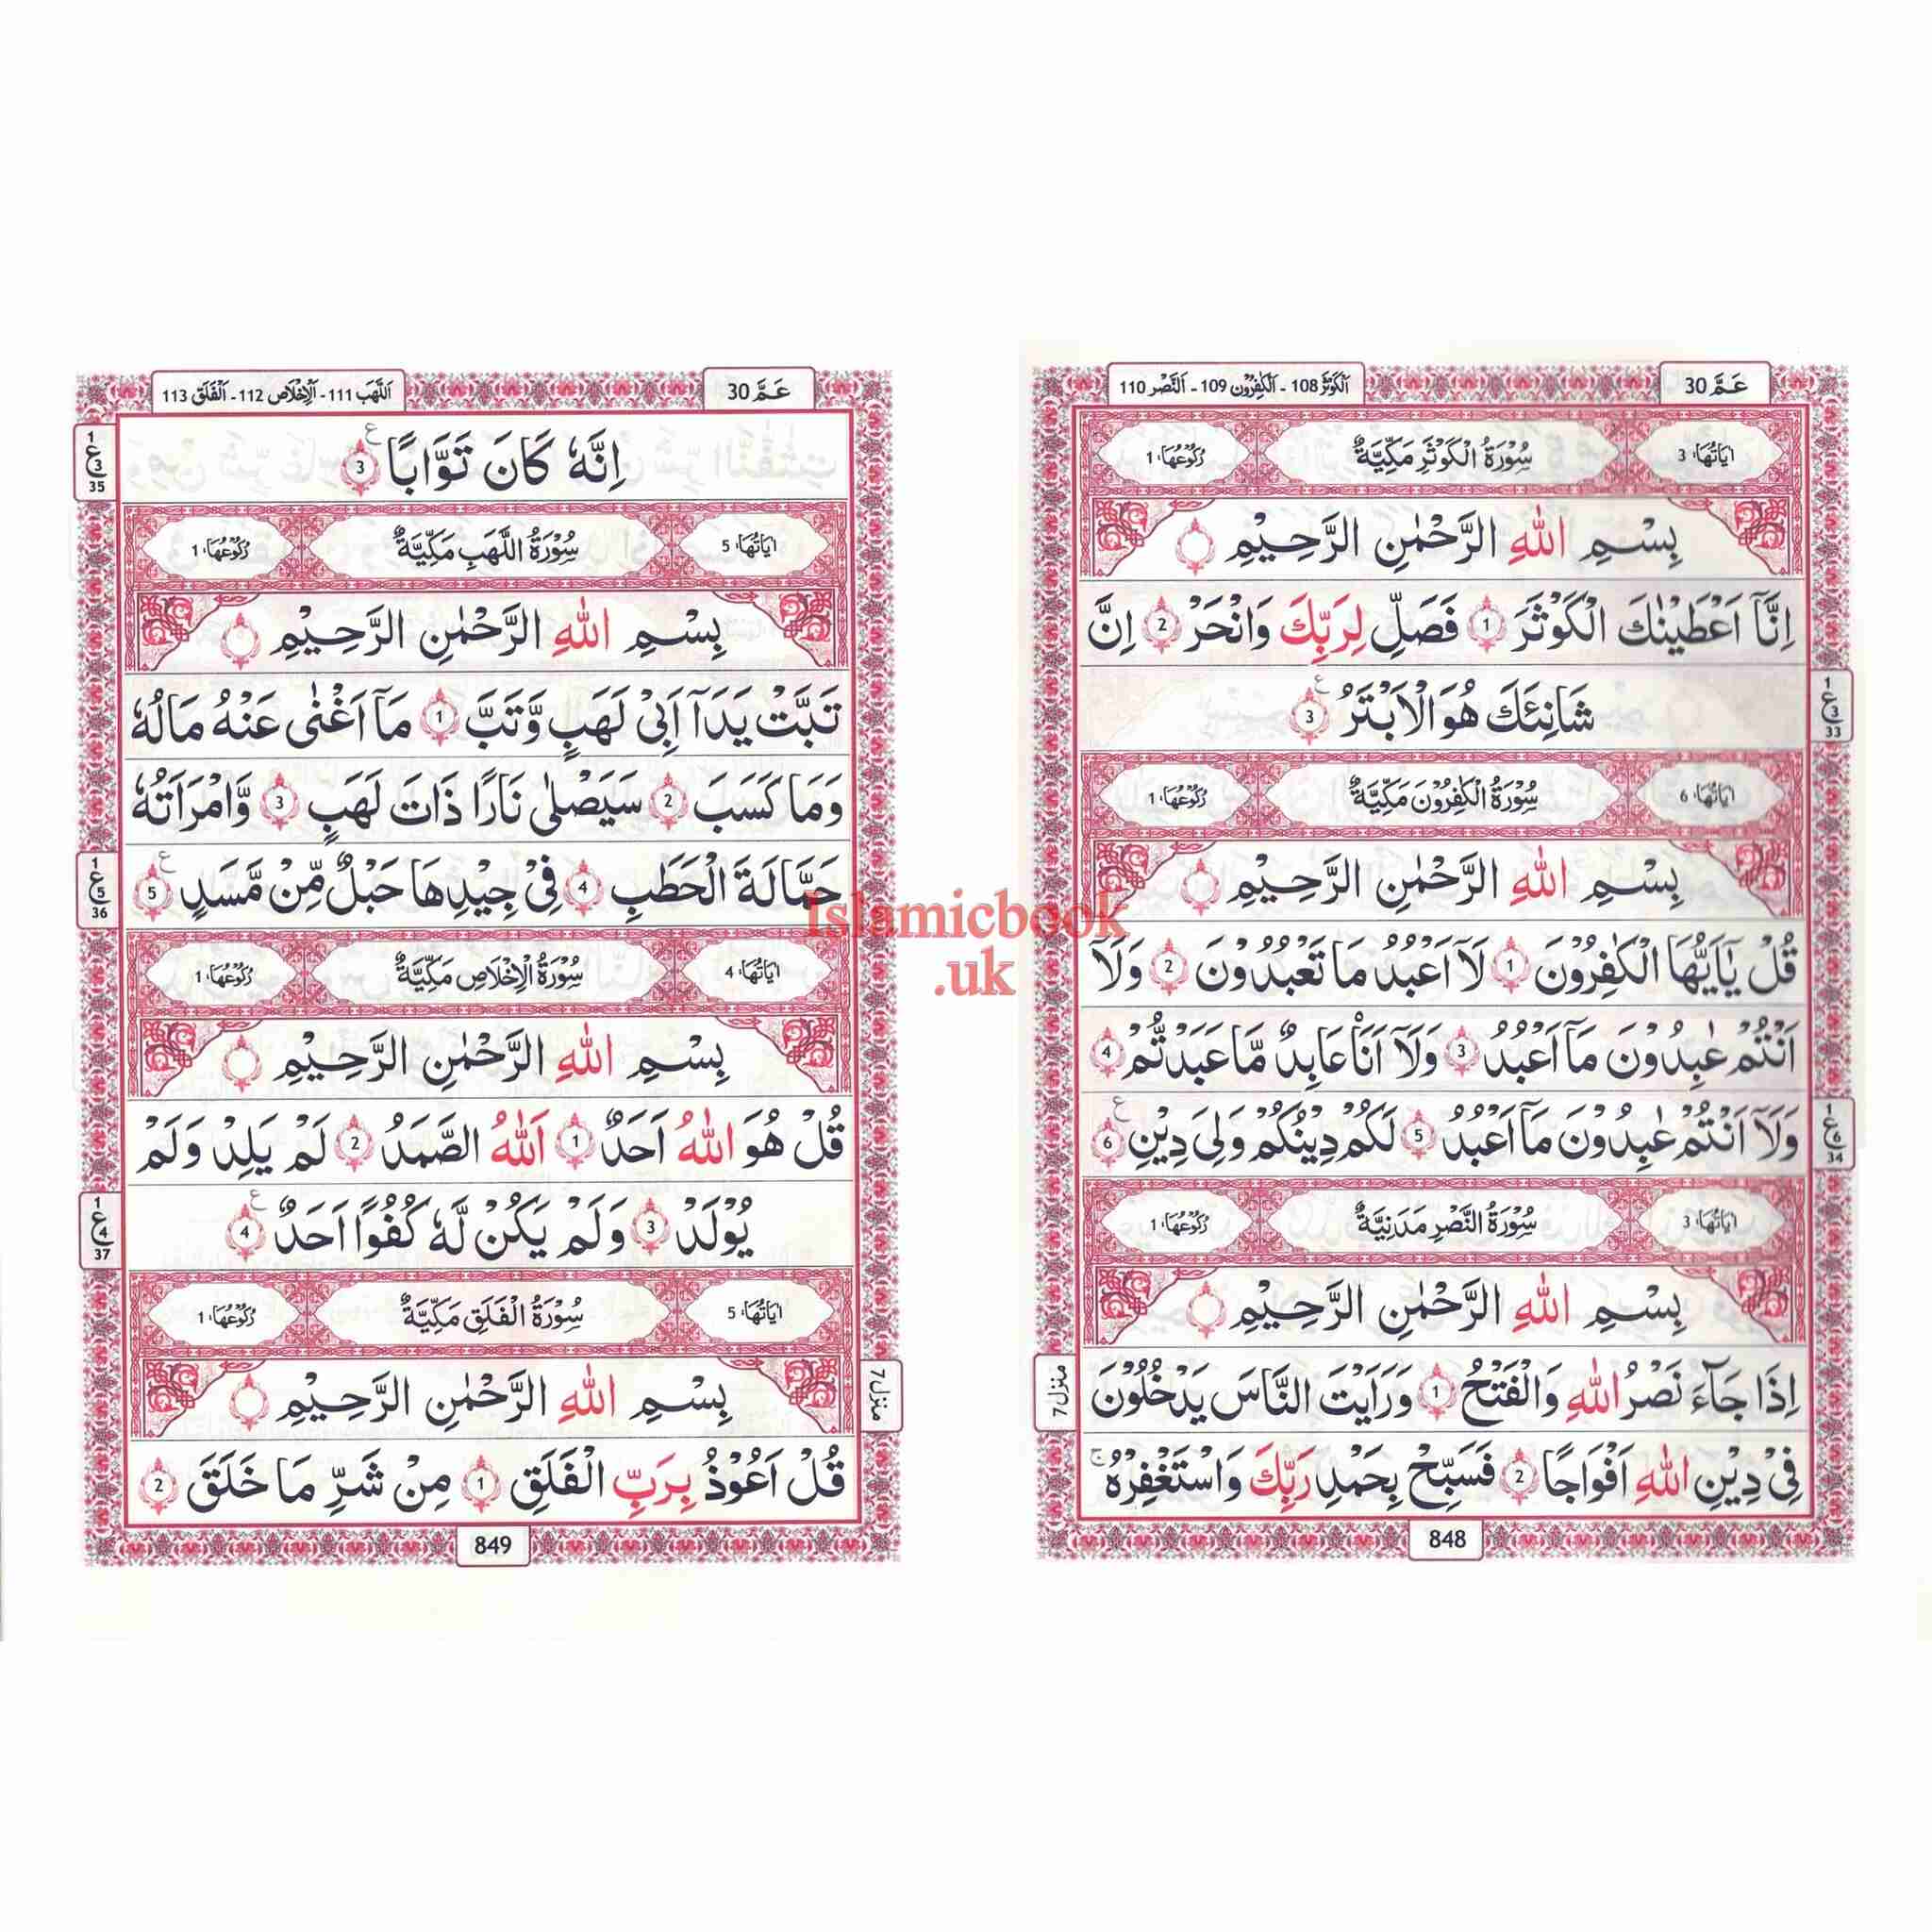 عَمَّ 30
اَلْكَوْثَر 108 - اَلْكٰفِرُوْن 109 - اَلنَّصْر 110
اٰيَاتُهَا: 3 سُوْرَةُ الْكَوْثَرِ مَكِّيَّةٌ رُكُوْعُهَا: 1
بِسْمِ اللّٰهِ الرَّحْمٰنِ الرَّحِيْمِ
اِنَّاۤ اَعْطَيْنٰكَ الْكَوْثَرَ 1 فَصَلِّ لِرَبِّكَ وَانْحَرْ 2 اِنَّ
شَانِئَكَ هُوَ الْاَبْتَرُ 3 ع
1 ع 3 33
اٰيَاتُهَا: 6 سُوْرَةُ الْكٰفِرُوْنَ مَكِّيَّةٌ رُكُوْعُهَا: 1
بِسْمِ اللّٰهِ الرَّحْمٰنِ الرَّحِيْمِ
قُلْ يٰۤاَيُّهَا الْكٰفِرُوْنَ 1 لَاۤ اَعْبُدُ مَا تَعْبُدُوْنَ 2 وَلَاۤ
اَنْتُمْ عٰبِدُوْنَ مَاۤ اَعْبُدُ 3 وَلَاۤ اَنَا عَابِدٌ مَّا عَبَدْتُّمْ 4
وَلَاۤ اَنْتُمْ عٰبِدُوْنَ مَاۤ اَعْبُدُ 5 لَكُمْ دِيْنُكُمْ وَلِيَ دِيْنِ 6 ع
1 ع 6 34
اٰيَاتُهَا: 3 سُوْرَةُ النَّصْرِ مَدَنِيَّةٌ رُكُوْعُهَا: 1
بِسْمِ اللّٰهِ الرَّحْمٰنِ الرَّحِيْمِ
اِذَا جَآءَ نَصْرُ اللّٰهِ وَالْفَتْحُ 1 وَرَاَيْتَ النَّاسَ يَدْخُلُوْنَ
منزل 7
فِيْ دِيْنِ اللّٰهِ اَفْوَاجًا 2 فَسَبِّحْ بِحَمْدِ رَبِّكَ وَاسْتَغْفِرْهُ ج
848
عَمَّ 30
اَللَّهَب 111 - اَلْاِخْلَاص 112 - اَلْفَلَق 113
اِنَّهٗ كَانَ تَوَّابًا 3 ع
1 ع 3 35
اٰيَاتُهَا: 5 سُوْرَةُ اللَّهَبِ مَكِّيَّةٌ رُكُوْعُهَا: 1
بِسْمِ اللّٰهِ الرَّحْمٰنِ الرَّحِيْمِ
تَبَّتْ يَدَاۤ اَبِيْ لَهَبٍ وَّتَبَّ 1 مَاۤ اَغْنٰى عَنْهُ مَالُهٗ
وَمَا كَسَبَ 2 سَيَصْلٰى نَارًا ذَاتَ لَهَبٍ 3 وَّامْرَاَتُهٗ
حَمَّالَةَ الْحَطَبِ 4 فِيْ جِيْدِهَا حَبْلٌ مِّنْ مَّسَدٍ 5 ع
1 ع 5 36
اٰيَاتُهَا: 4 سُوْرَةُ الْاِخْلَاصِ مَكِّيَّةٌ رُكُوْعُهَا: 1
بِسْمِ اللّٰهِ الرَّحْمٰنِ الرَّحِيْمِ
قُلْ هُوَ اللّٰهُ اَحَدٌ 1 اَللّٰهُ الصَّمَدُ 2 لَمْ يَلِدْ وَلَمْ
يُوْلَدْ 3 وَلَمْ يَكُنْ لَّهٗ كُفُوًا اَحَدٌ 4 ع
1 ع 4 37
اٰيَاتُهَا: 5 سُوْرَةُ الْفَلَقِ مَكِّيَّةٌ رُكُوْعُهَا: 1
بِسْمِ اللّٰهِ الرَّحْمٰنِ الرَّحِيْمِ
منزل 7
قُلْ اَعُوْذُ بِرَبِّ الْفَلَقِ 1 مِنْ شَرِّ مَا خَلَقَ 2
849
Islamicbook
.uk